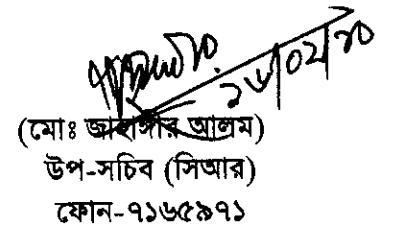 ১৬/০২/১০
(মোঃ জাহাঙ্গীর আলম)
উপ-সচিব (সিআর)
ফোন-৭১৬৫৯৭১